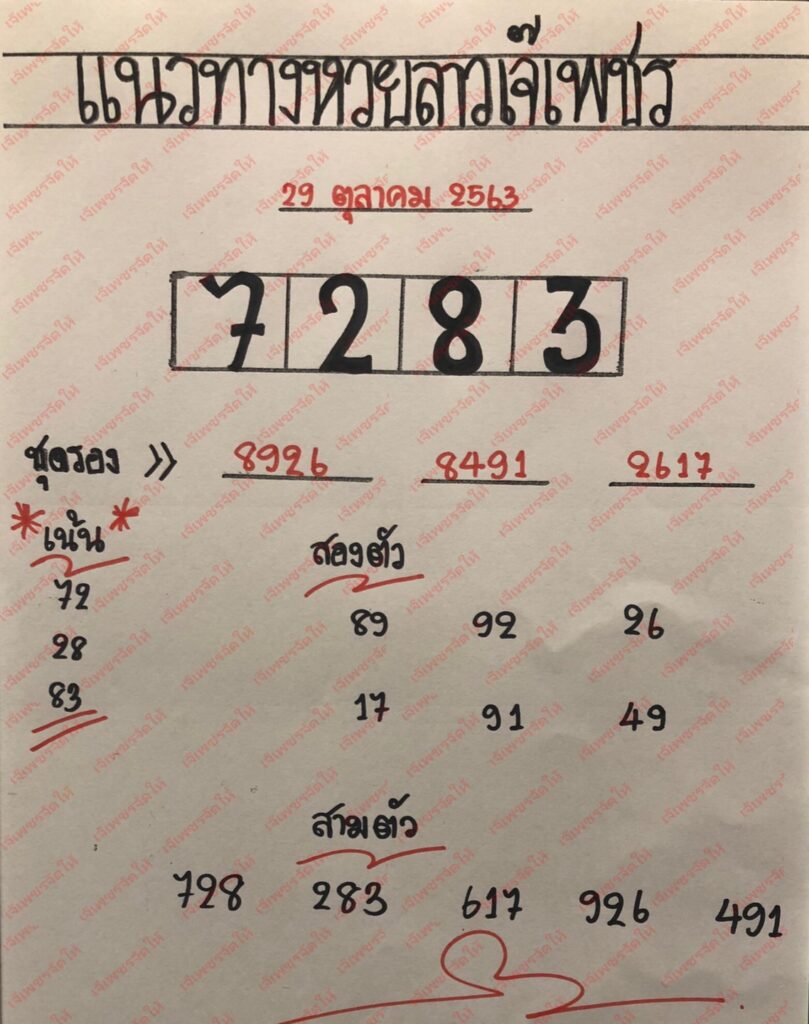 แนวทางหวยลาวเจ๊เพชร
29 ตุลาคม 2563
7 2 8 3
ชุดรอง >> 8926 8491 2617
*เน้น* สองตัว
72
89 92 26
28
83
17 91 49
สามตัว
728 283 617 926 491
เจ๊เพชรจัดให้